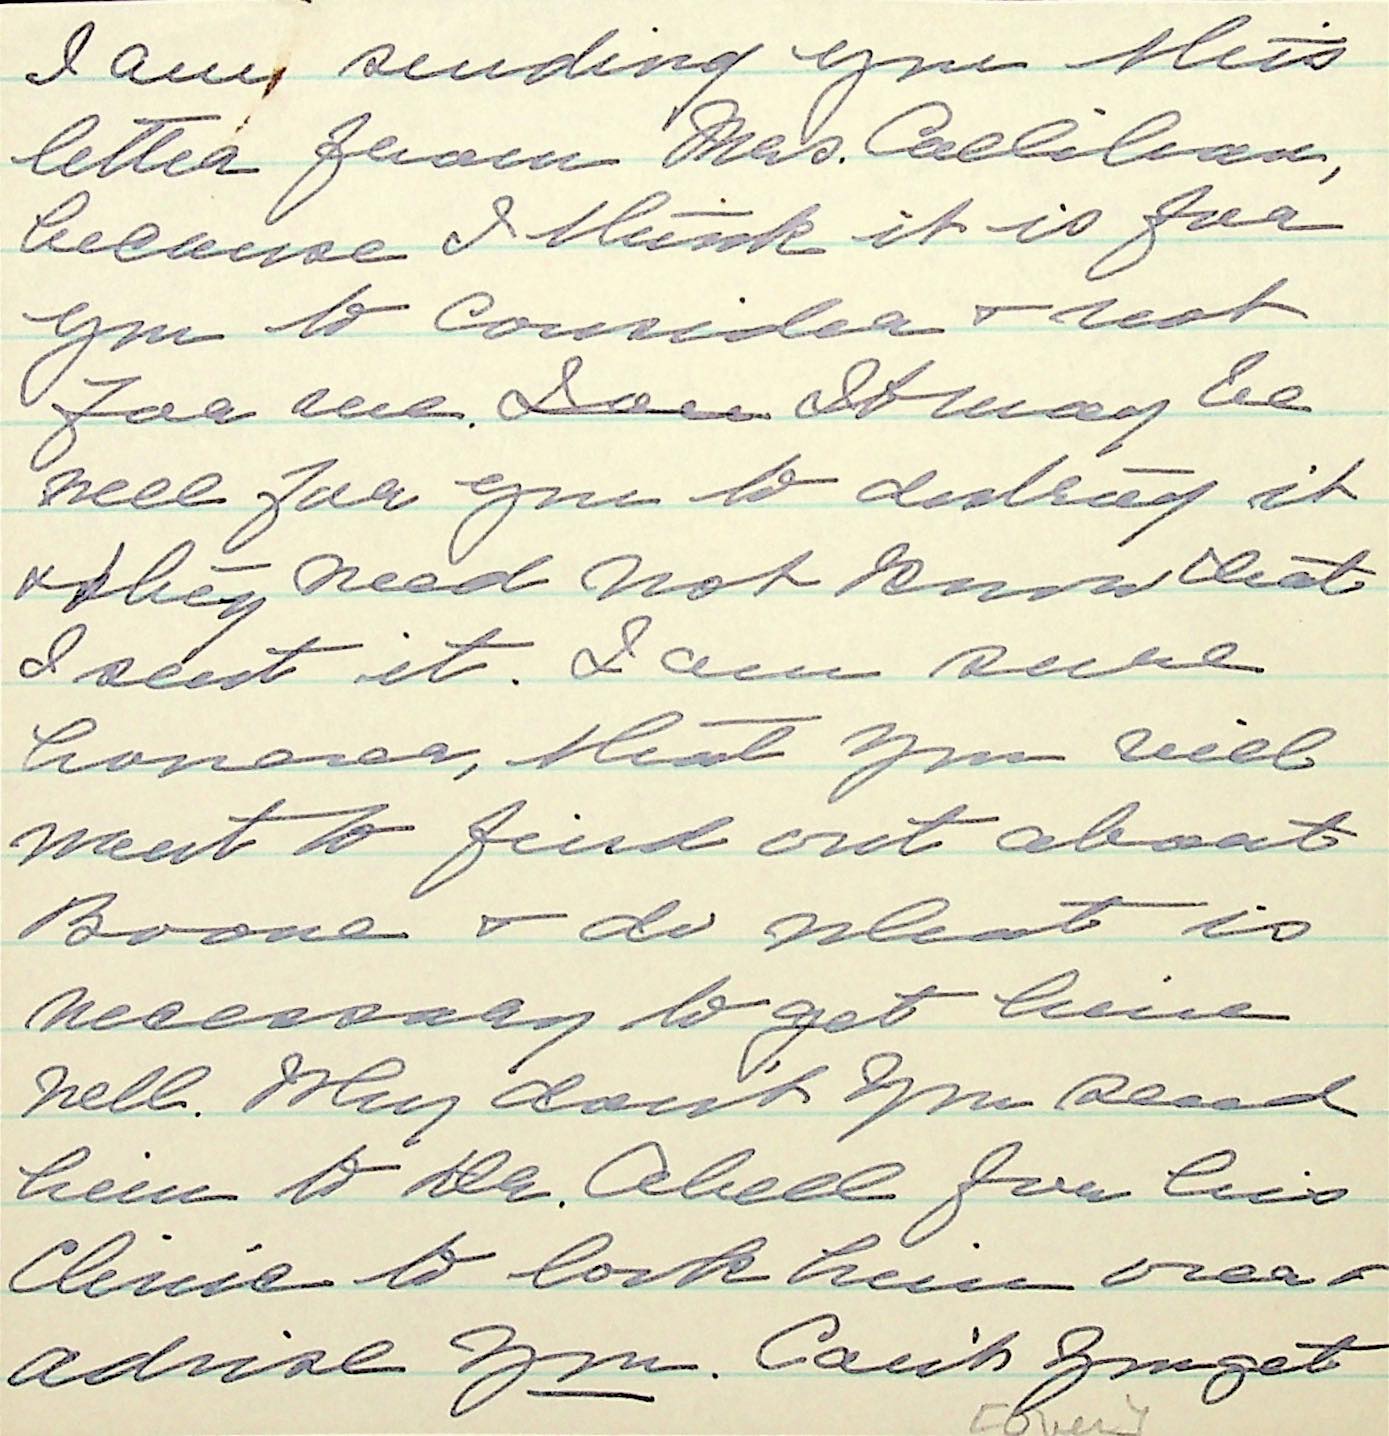 I am sending you this
letter from Mrs. Callihan,
because I think it is for
you to consider + not
for me. It may be
well for you to destroy it
+ they need not know that
I sent it. I am sure
however, that you will
want to find out about
Boone + do what is
necessary to get him
well. Why don't you send
him to Dr. Abell for his
Clinic to look him over +
advise you. Can't you get
[over]